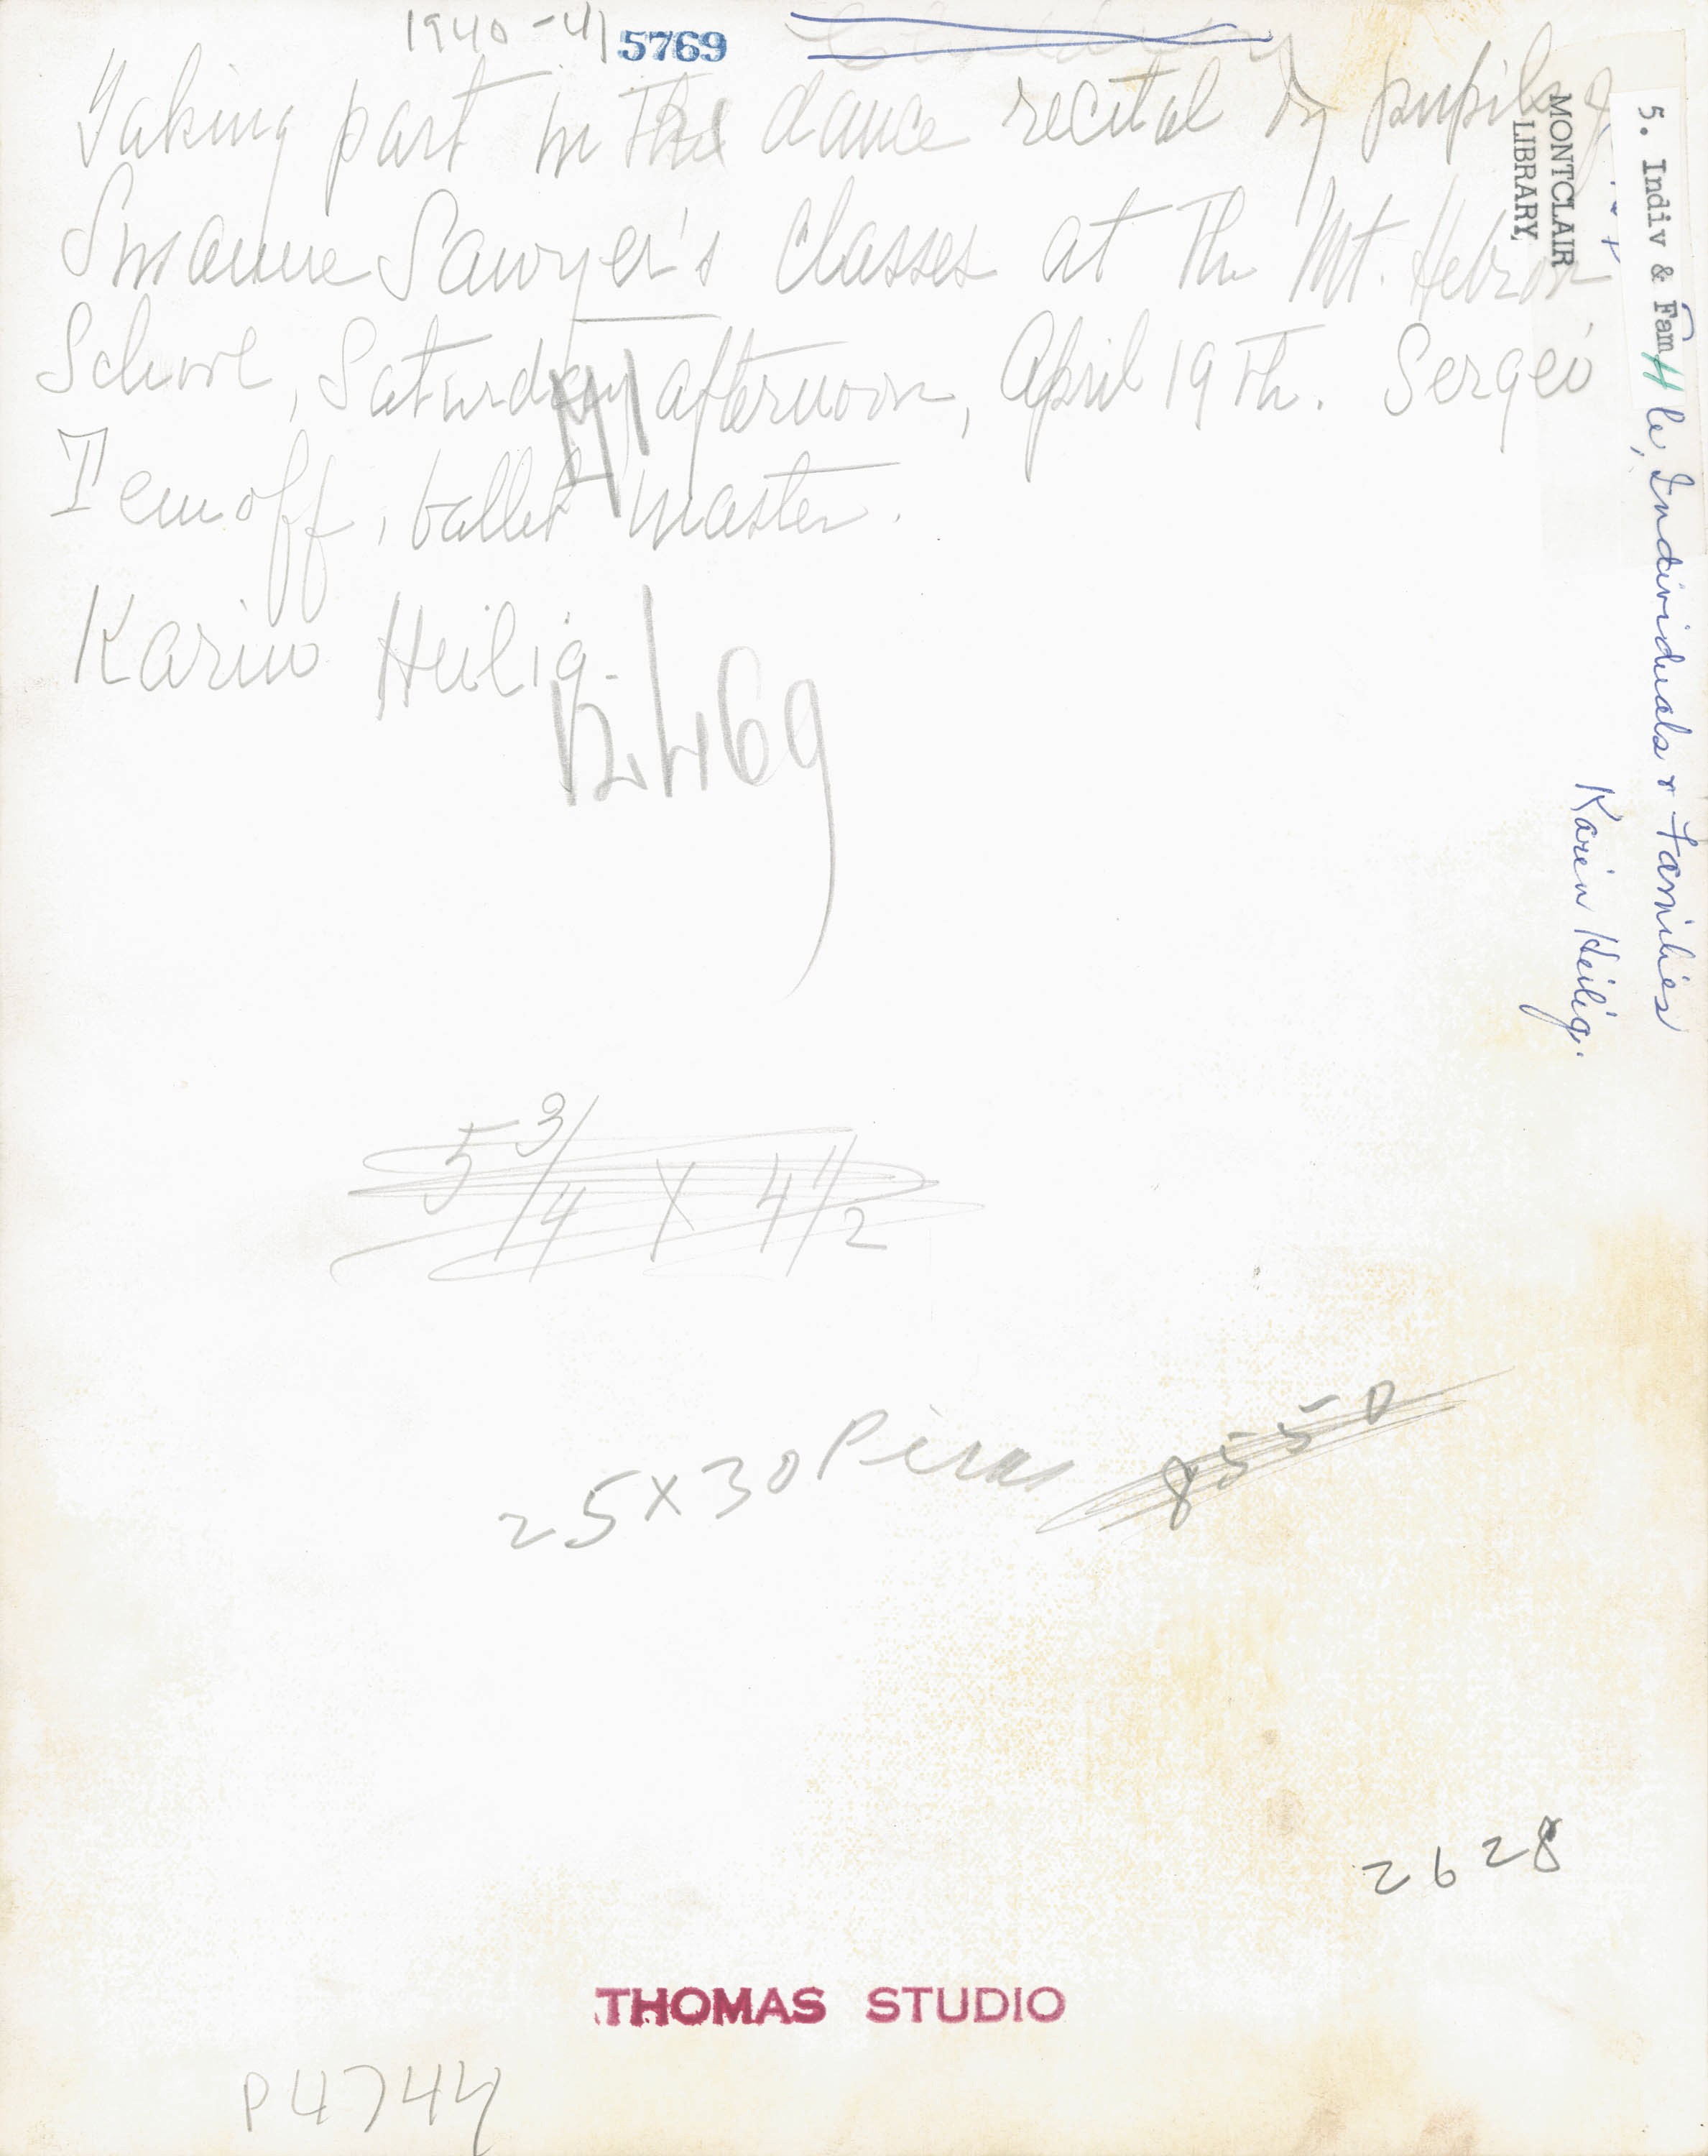 1940-41 5769
Taking part in the dance recital by pupils of
Susanne Sawyer's classes at the Mt. Hebron
School, Saturday afternoon, April 19th. Sergei
Temoff, ballet master.
Karin Heilig.
41
12469
5 3/4 X 4 1/2
25x30 Picas 8550
2628
THOMAS STUDIO
P4744
5. Indiv & Fam
He, Individuals & Families
Karin Heilig.
MONTCLAIR
LIBRARY